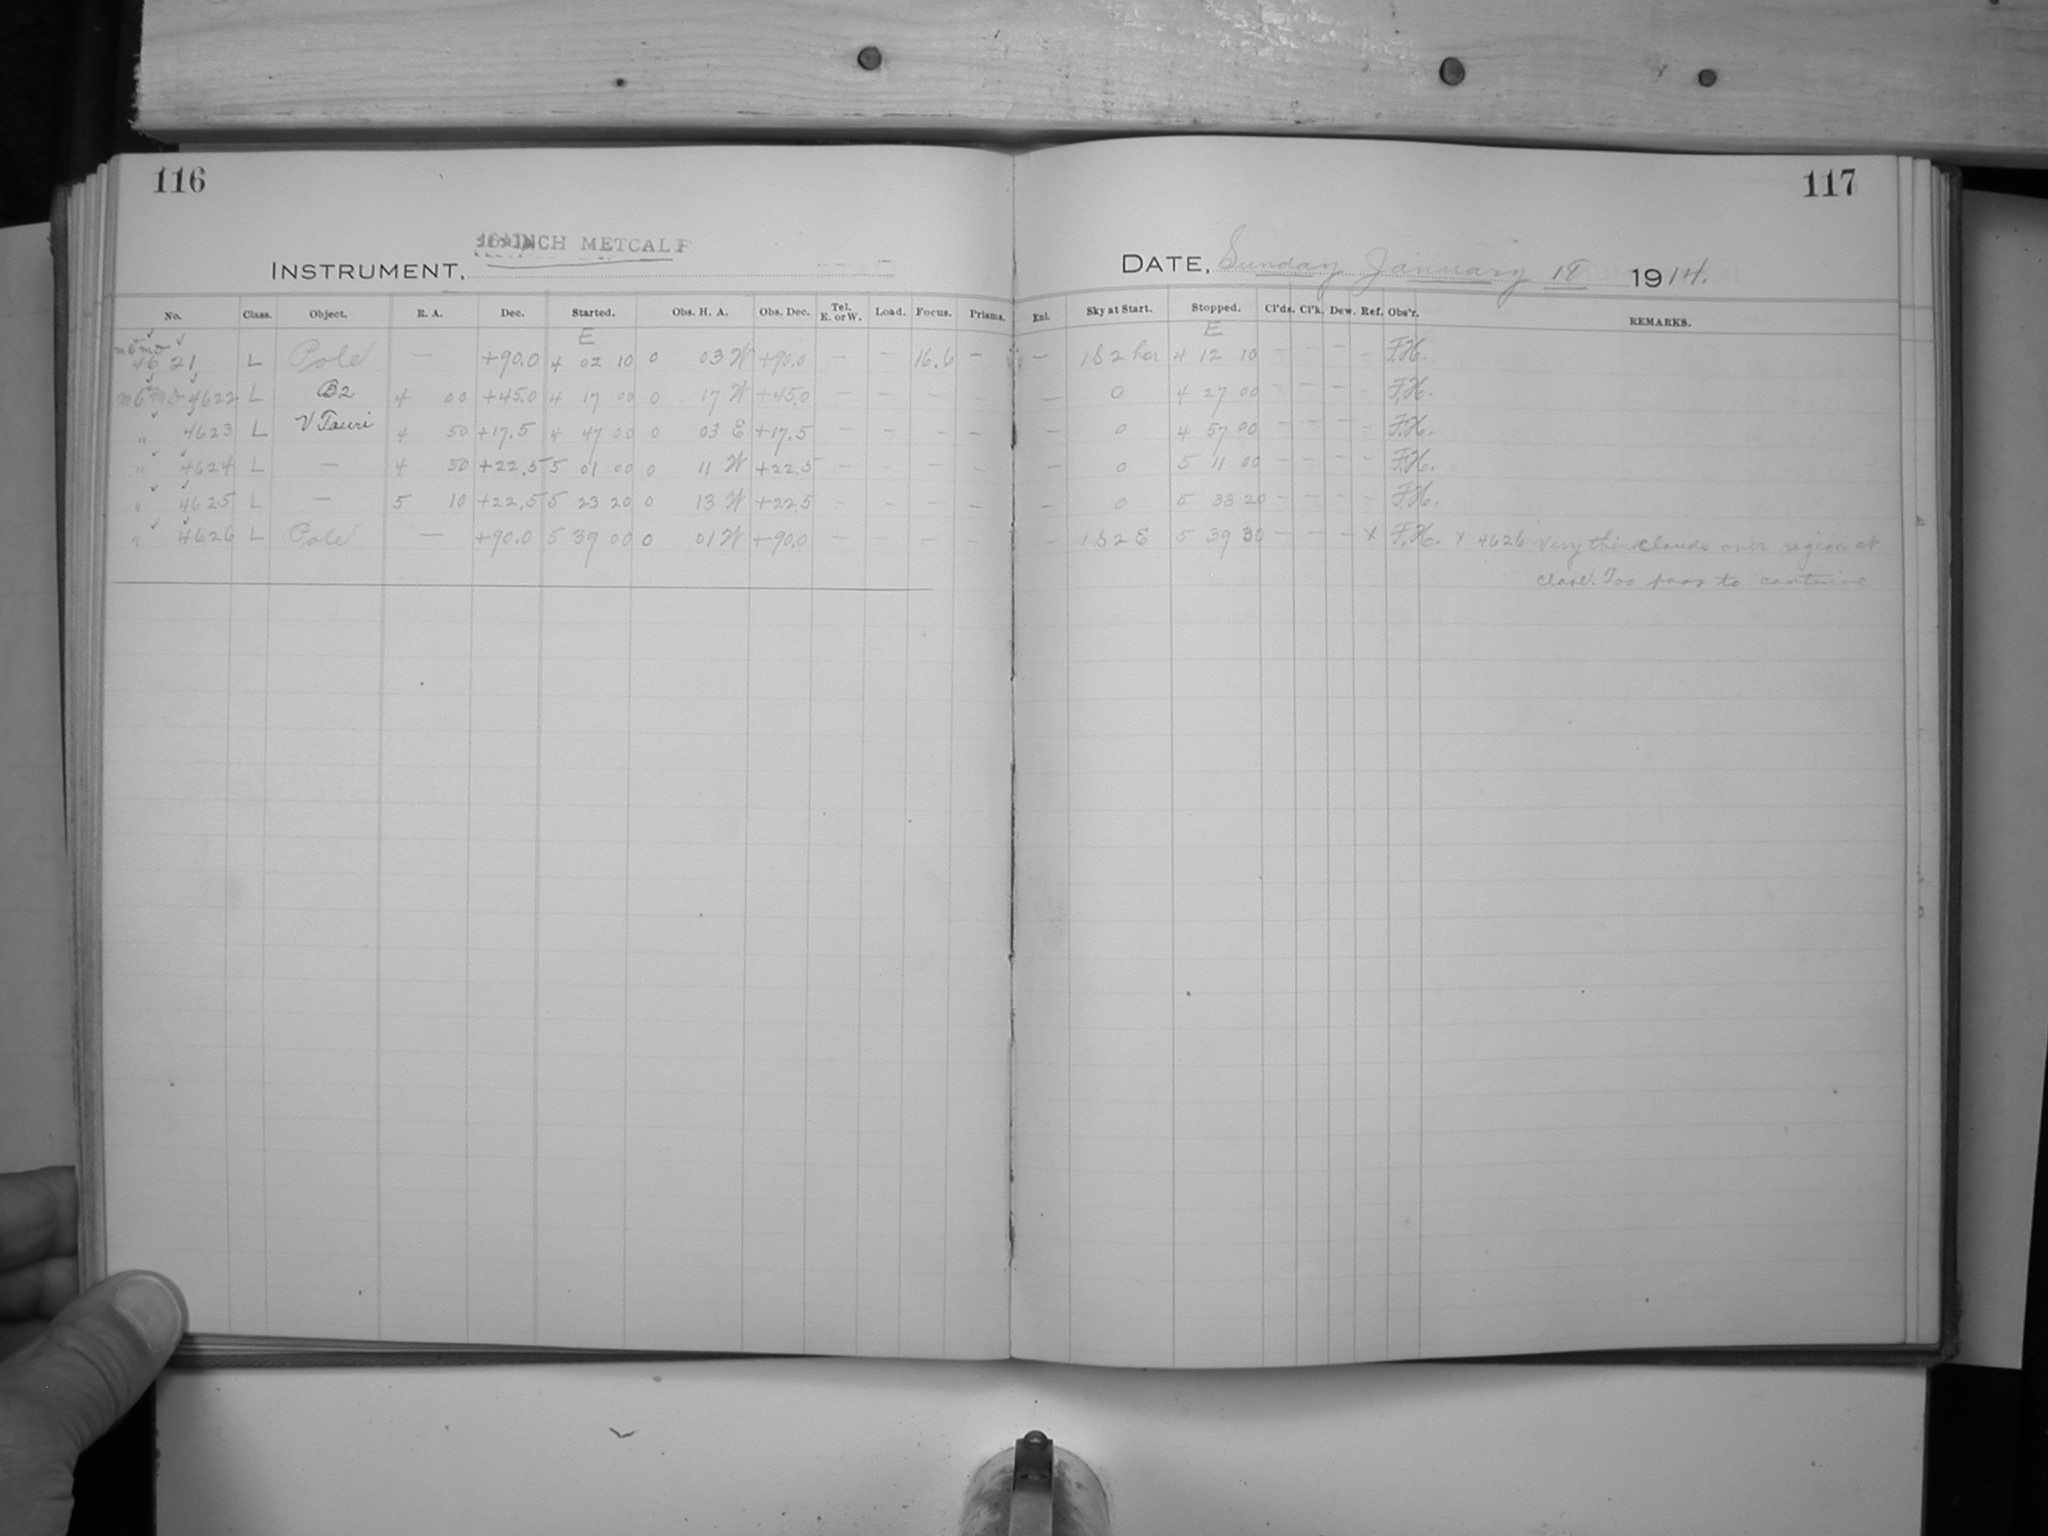 116
16-INCH METCALF
INSTRUMENT,
No. Class. Object. R. A. Dec. Started. Obs. H. A. Obs. Dec. Tel. E. or W. Load. Focus. Prisms.
E
4621 L Pole — +90.0 4 02 10 0 03 W +90.0 — — 16.6 —
4622 L B2 4 00 +45.0 4 17 00 0 17 W +45.0 — — — —
" 4623 L V Tauri 4 50 +17.5 4 47 00 0 03 E +17.5 — — — —
" 4624 L — 4 50 +22.5 5 01 00 0 11 W +22.5 — — — —
" 4625 L — 5 10 +22.5 5 23 20 0 13 W +22.5 — — — —
" 4626 L Pole — +90.0 5 39 00 0 01 W +90.0 — — — —
117
DATE, Sunday January 18 1914.
Enl. Sky at Start. Stopped. Cl'ds. Cl'k. Dew. Ref. Obs'r. REMARKS.
E
— 1 S 2 hor 4 12 10 — — — — F.H.
— 0 4 27 00 — — — — F.H.
— 0 4 57 00 — — — — F.H.
— 0 5 11 00 — — — — F.H.
— 0 5 33 20 — — — — F.H.
— 1 S 2 E 5 39 30 — — — x F.H. x 4626 Very thin clouds over region at
close. Too poor to continue